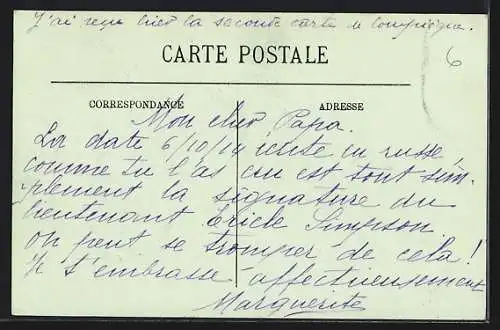 J'ai reçu hier la seconde carte de Compiègne.
6
CARTE POSTALE
CORRESPONDANCE
ADRESSE
Mon cher Papa.
La date 6/10/14 écrite en russe,
comme tu l'as cru est tout sim-
plement la signature du
lieutenant Erick Simpson
on peut se tromper de cela !
Je t'embrasse affectueusement
Marguerite